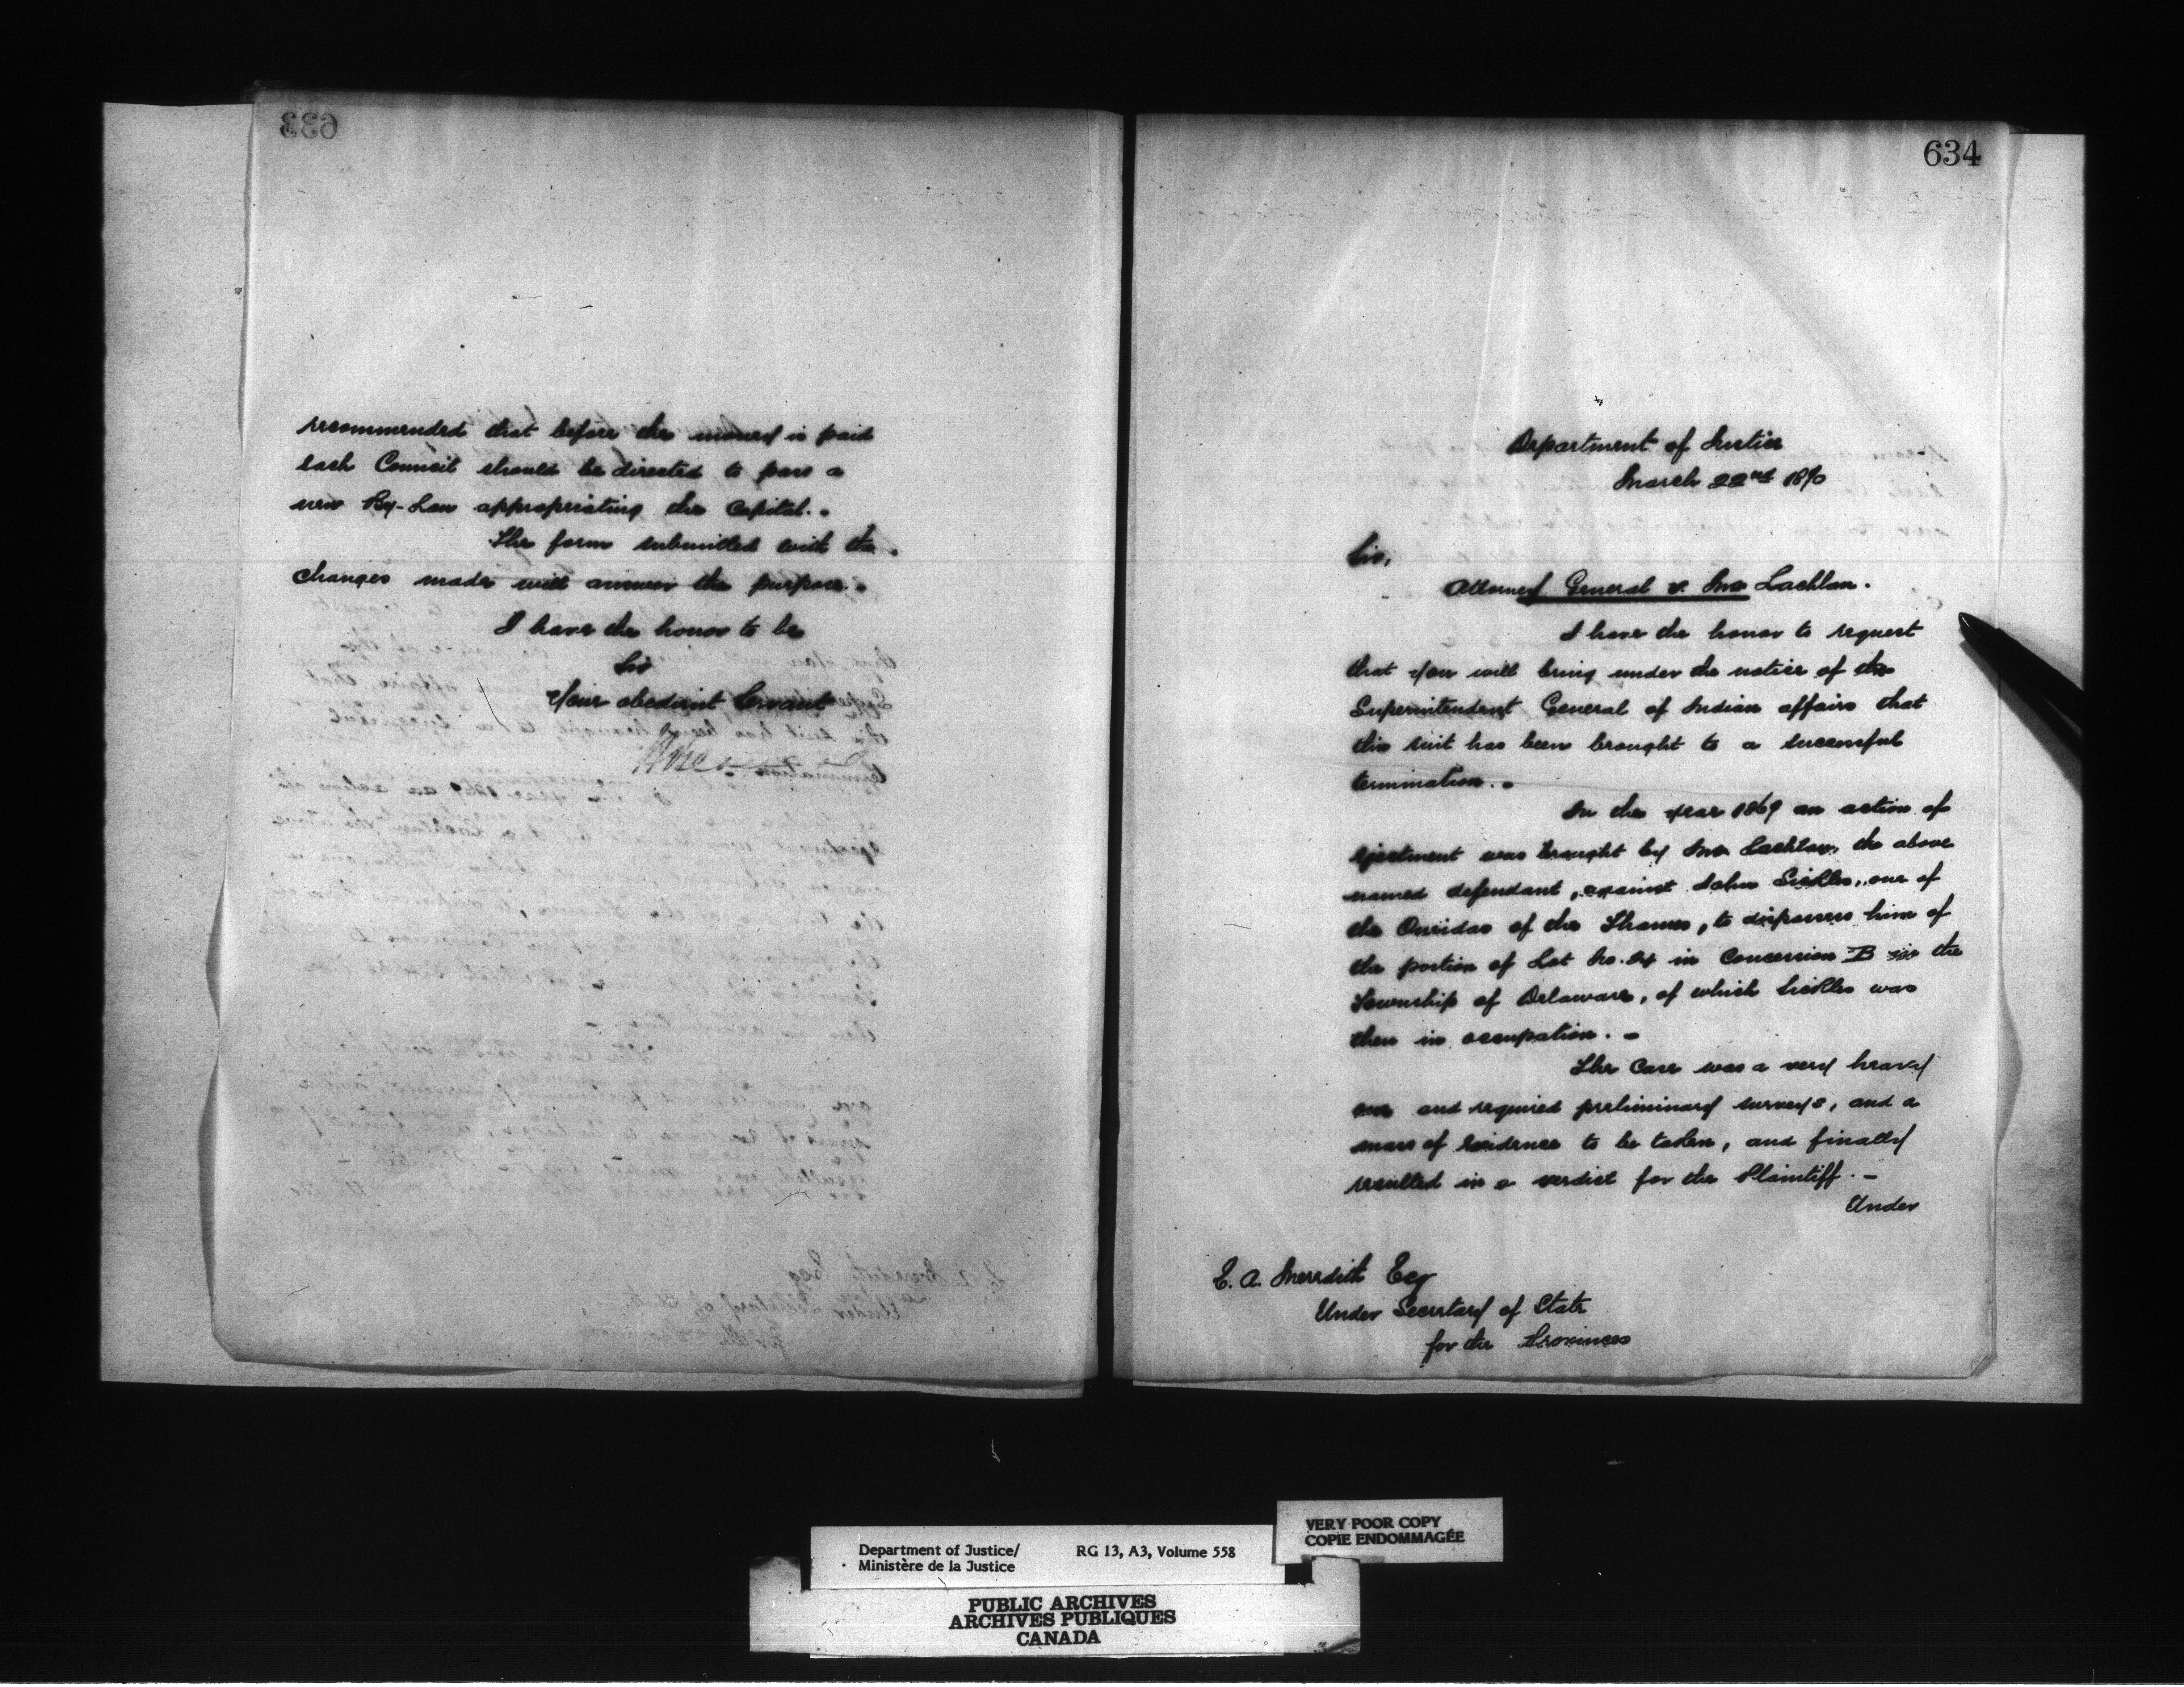 633
recommended that before the money is paid
each Council should be directed to pass a
new By-Law appropriating the Capital.
The form submitted with the
changes made will answer the purpose.
I have the honor to be
Sir
Your obedient Servant
634
Department of Justice
March 22nd 1870
Sir,
Attorney General v. McLachlan.
I have the honor to request
that you will bring under the notice of the
Superintendent General of Indian affairs that
this suit has been brought to a successful
termination.
In the year 1869 an action of
ejectment was brought by McLachlan, the above
named defendant, against John Sickles, one of
the Oneidas of the Thames, to dispossess him of
the portion of Lot No. in Concession B in the
Township of Delaware, of which Sickles was
then in occupation. -
The Case was a very heavy
one and required preliminary surveys, and a
mass of evidence to be taken, and finally
resulted in a verdict for the Plaintiff. -
Under
E. A. Meredith Esq
Under Secretary of State
for the Provinces
VERY POOR COPY
COPIE ENDOMMAGÉE
Department of Justice/ RG 13, A3, Volume 558
Ministère de la Justice
PUBLIC ARCHIVES
ARCHIVES PUBLIQUES
CANADA